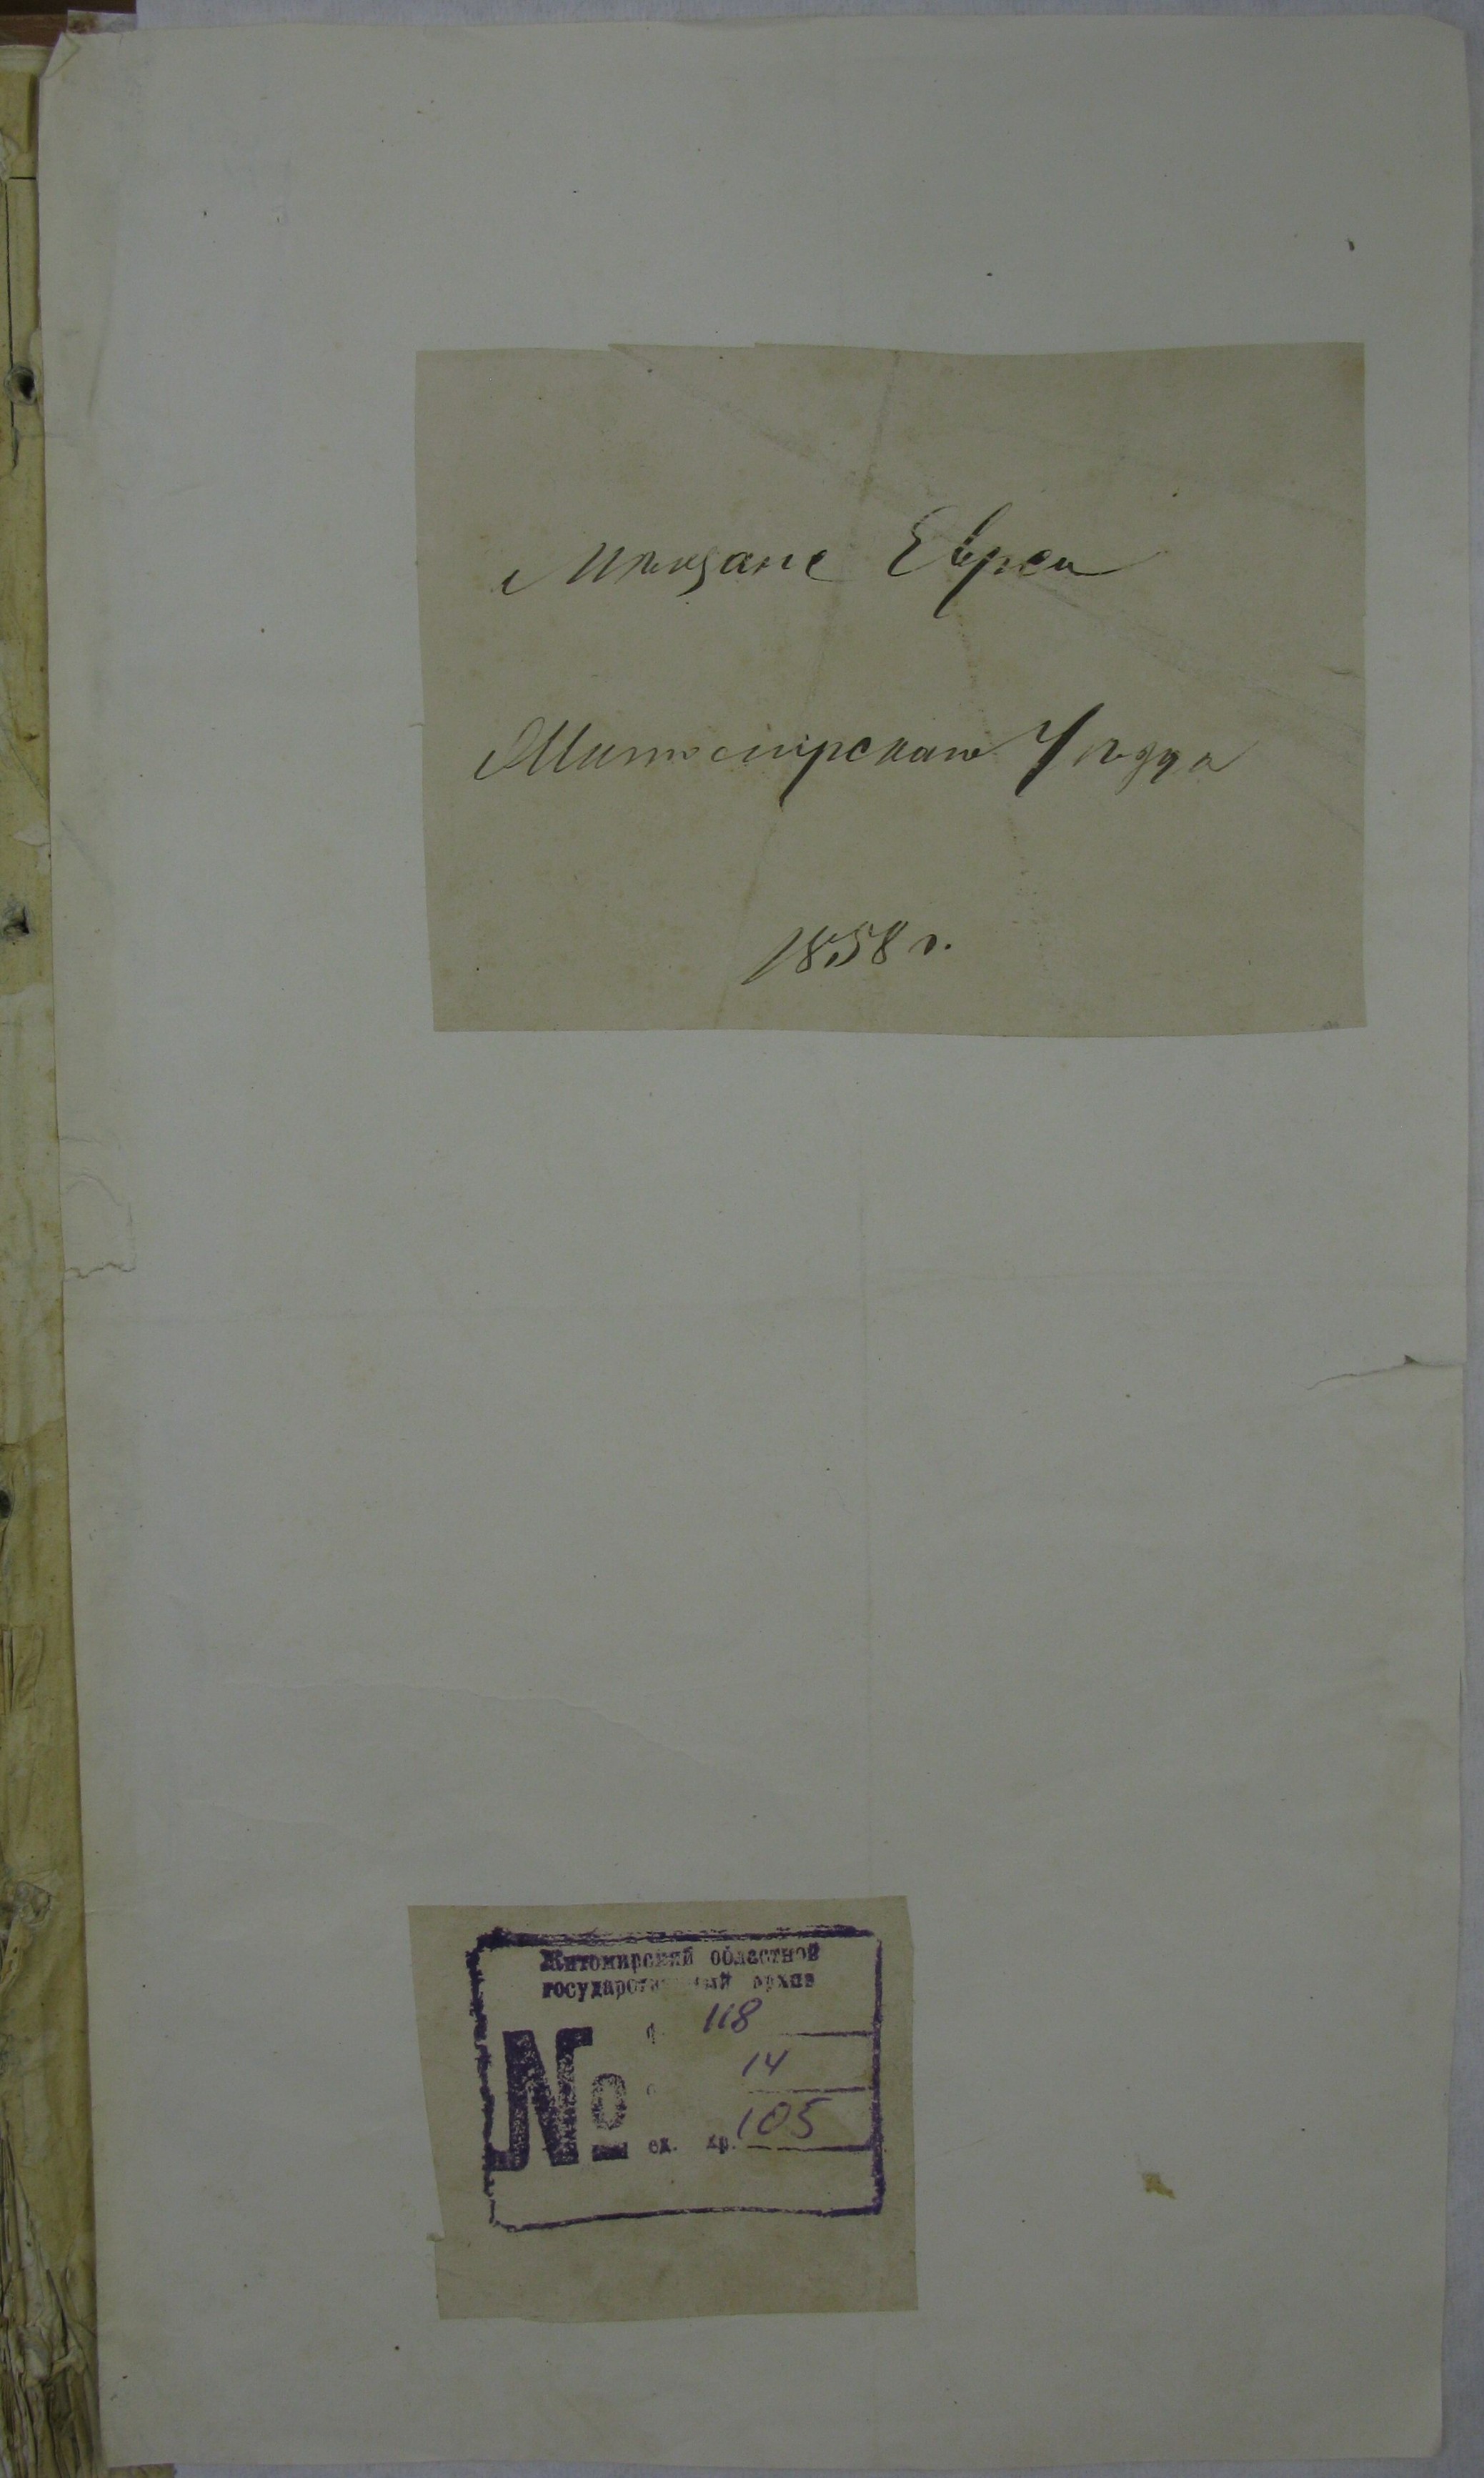 Мѣщане Евреи
Житомирскаго Уѣзда
1858 г.
Житомирский областной
государственный архив
№
ф. 118
о 14
ед. хр. 105